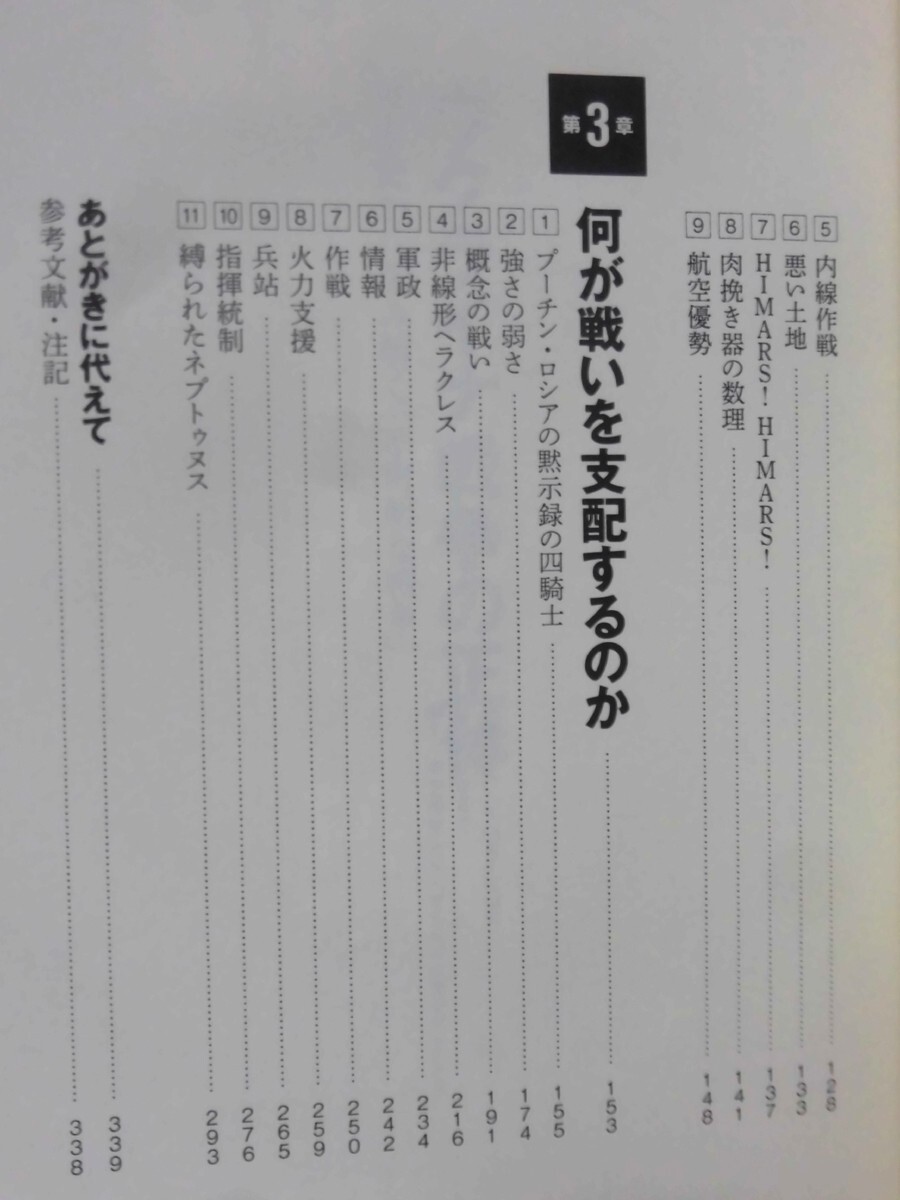 5 内線作戦 128
6 悪い土地 133
7 HIMARS! HIMARS! 137
8 肉挽き器の数理 141
9 航空優勢 148
第3章
何が戦いを支配するのか 153
1 プーチン・ロシアの黙示録の四騎士 155
2 強さの弱さ 174
3 概念の戦い 191
4 非線形ヘラクレス 216
5 軍政 234
6 情報 242
7 作戦 250
8 火力支援 259
9 兵站 265
10 指揮統制 276
11 縛られたネプトゥヌス 293
あとがきに代えて 339
参考文献・注記 338